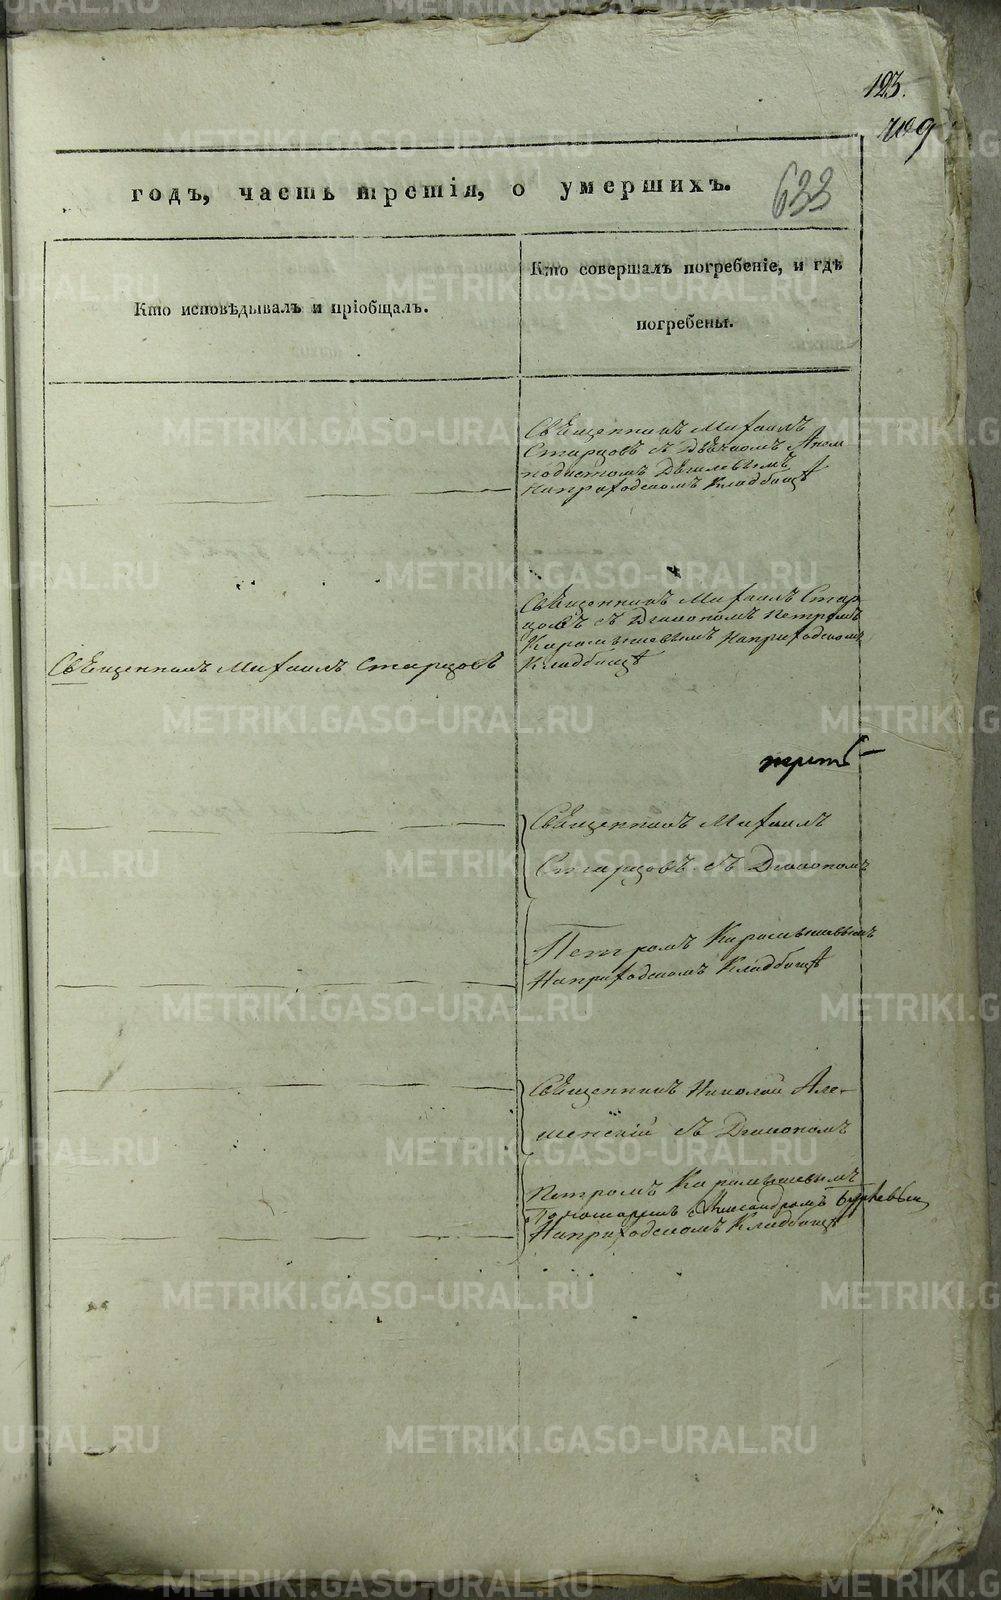 123.
709
633
годъ, часть третія, о умершихъ.
Кто исповѣдывалъ и пріобщалъ.
Кто совершалъ погребеніе, и гдѣ
погребены.
Священникъ Михаилъ
Старцовъ съ Дьячкомъ
Наприходскомъ Кладбищѣ
Священникъ Михаилъ Старцовъ
Священникъ Михаилъ Стар
цовъ съ Діакономъ Петромъ
Наприходскомъ
Кладбищѣ
Священникъ Михаилъ
Старцовъ съ Діакономъ
Петромъ
Наприходскомъ Кладбищѣ
Священникъ Николай
съ Діакономъ
Петромъ
Пономаремъ Александромъ
Наприходскомъ Кладбищѣ
METRIKI.GASO-URAL.RU